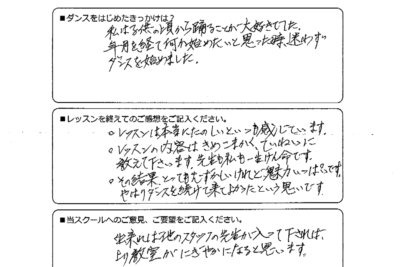 ■ダンスをはじめたきっかけは？
私は子供の頃から踊ることが大好きでした。
年月を経て何か始めたいと思った時、迷わず
ダンスを始めました。
■レッスンを終えてのご感想をご記入ください。
○レッスンは本当にたのしいといつも感じています。
○レッスンの内容はきめこまかく、ていねいに
教えて下さいます。先生も私も一生けん命です。
○その結果とってもむずかしいけれど魅力いっぱいです。
やはりダンスを続けて来てよかったという思いです
■当スクールへのご意見、ご要望をご記入ください。
出来れば他のスタッフの先生が入って下されば、
より教室がにぎやかになると思います。